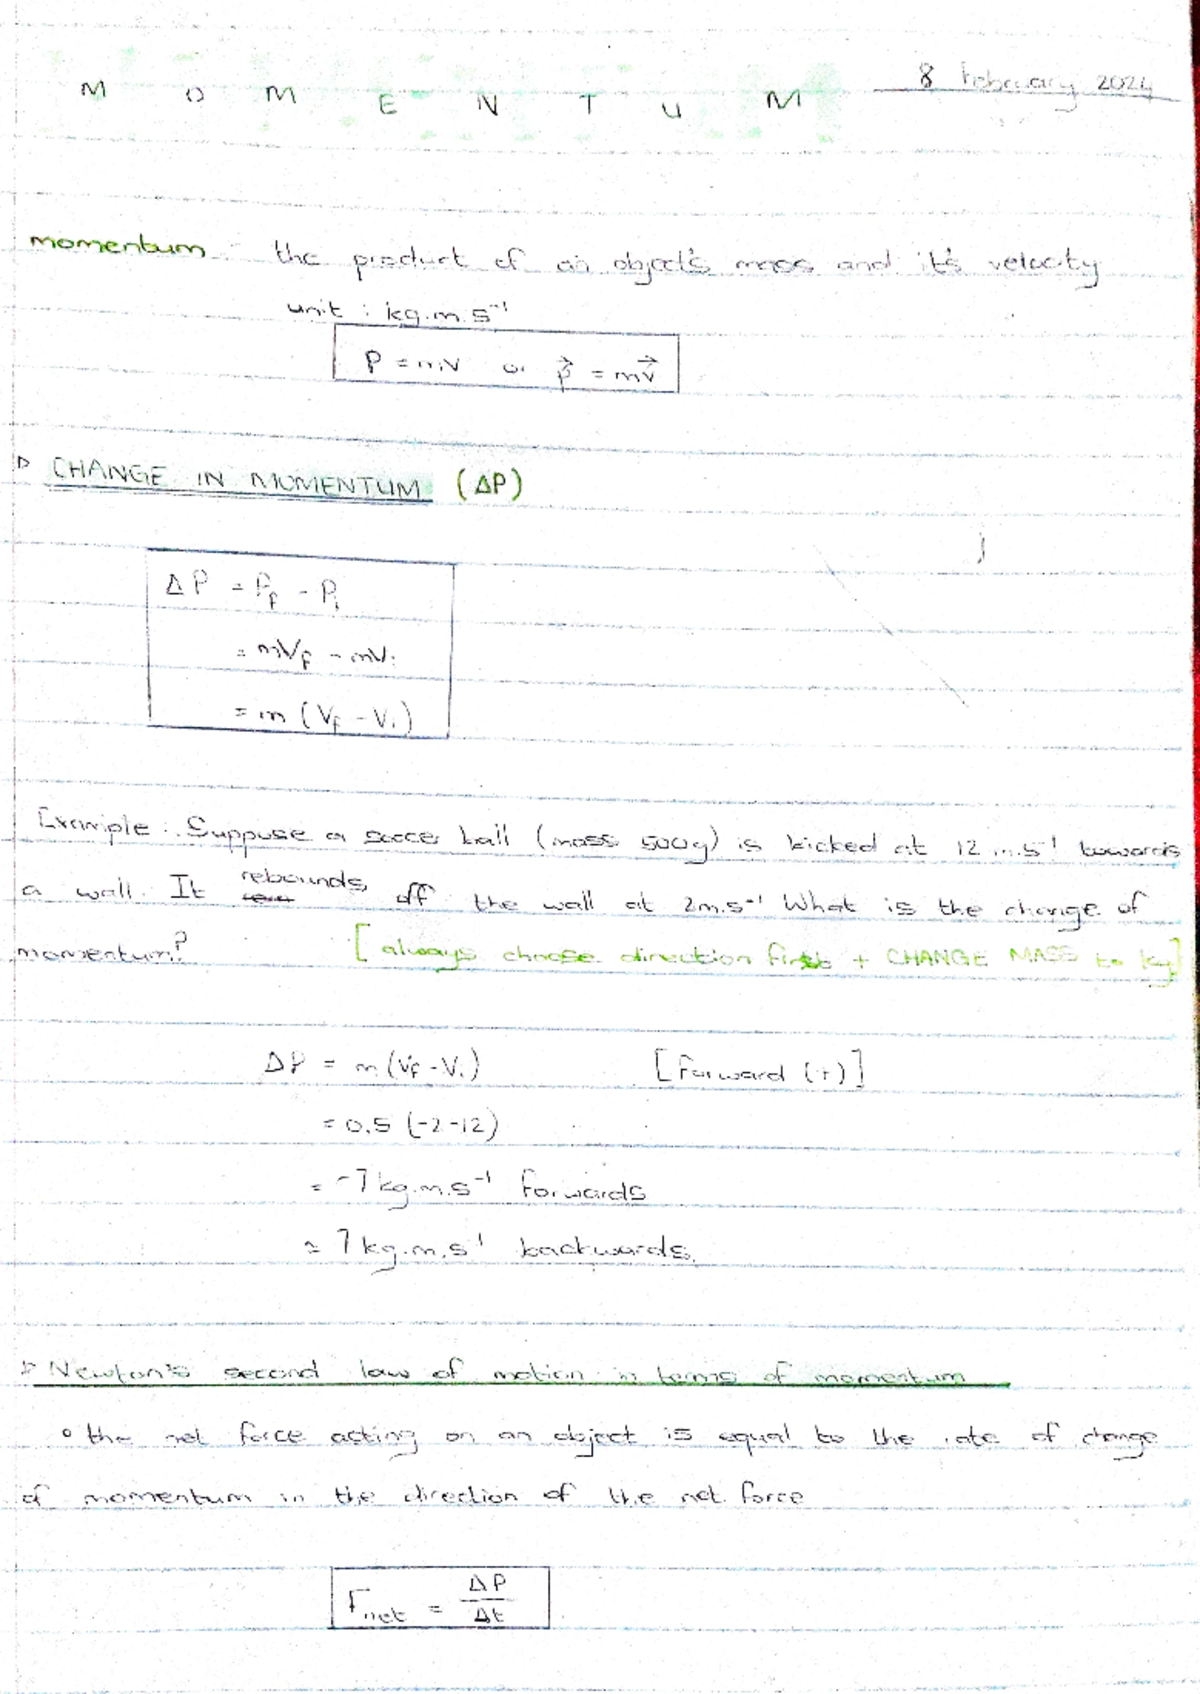 8 February 2024
M O M E N T U M
momentum : the product of an object's mass and it's velocity
unit : kg.m.s⁻¹
P = mv or p⃗ = mv⃗
▷ CHANGE IN MOMENTUM (ΔP)
ΔP = P_f - P_i
= mV_f - mV_i
= m (V_f - V_i)
Example : Suppose a soccer ball (mass 500g) is kicked at 12 m.s⁻¹ towards
a wall. It rebounds off the wall at 2m.s⁻¹ What is the change of
momentum? [always choose direction first + CHANGE MASS to kg]
ΔP = m (V_f - V_i) [Forward (+)]
= 0,5 (-2-12)
= -7kg.m.s⁻¹ forwards
= 7kg.m.s⁻¹ backwards.
▷ Newton's second law of motion in terms of momentum
• the net force acting on an object is equal to the rate of change
of momentum in the direction of the net force
F_net = ΔP/Δt